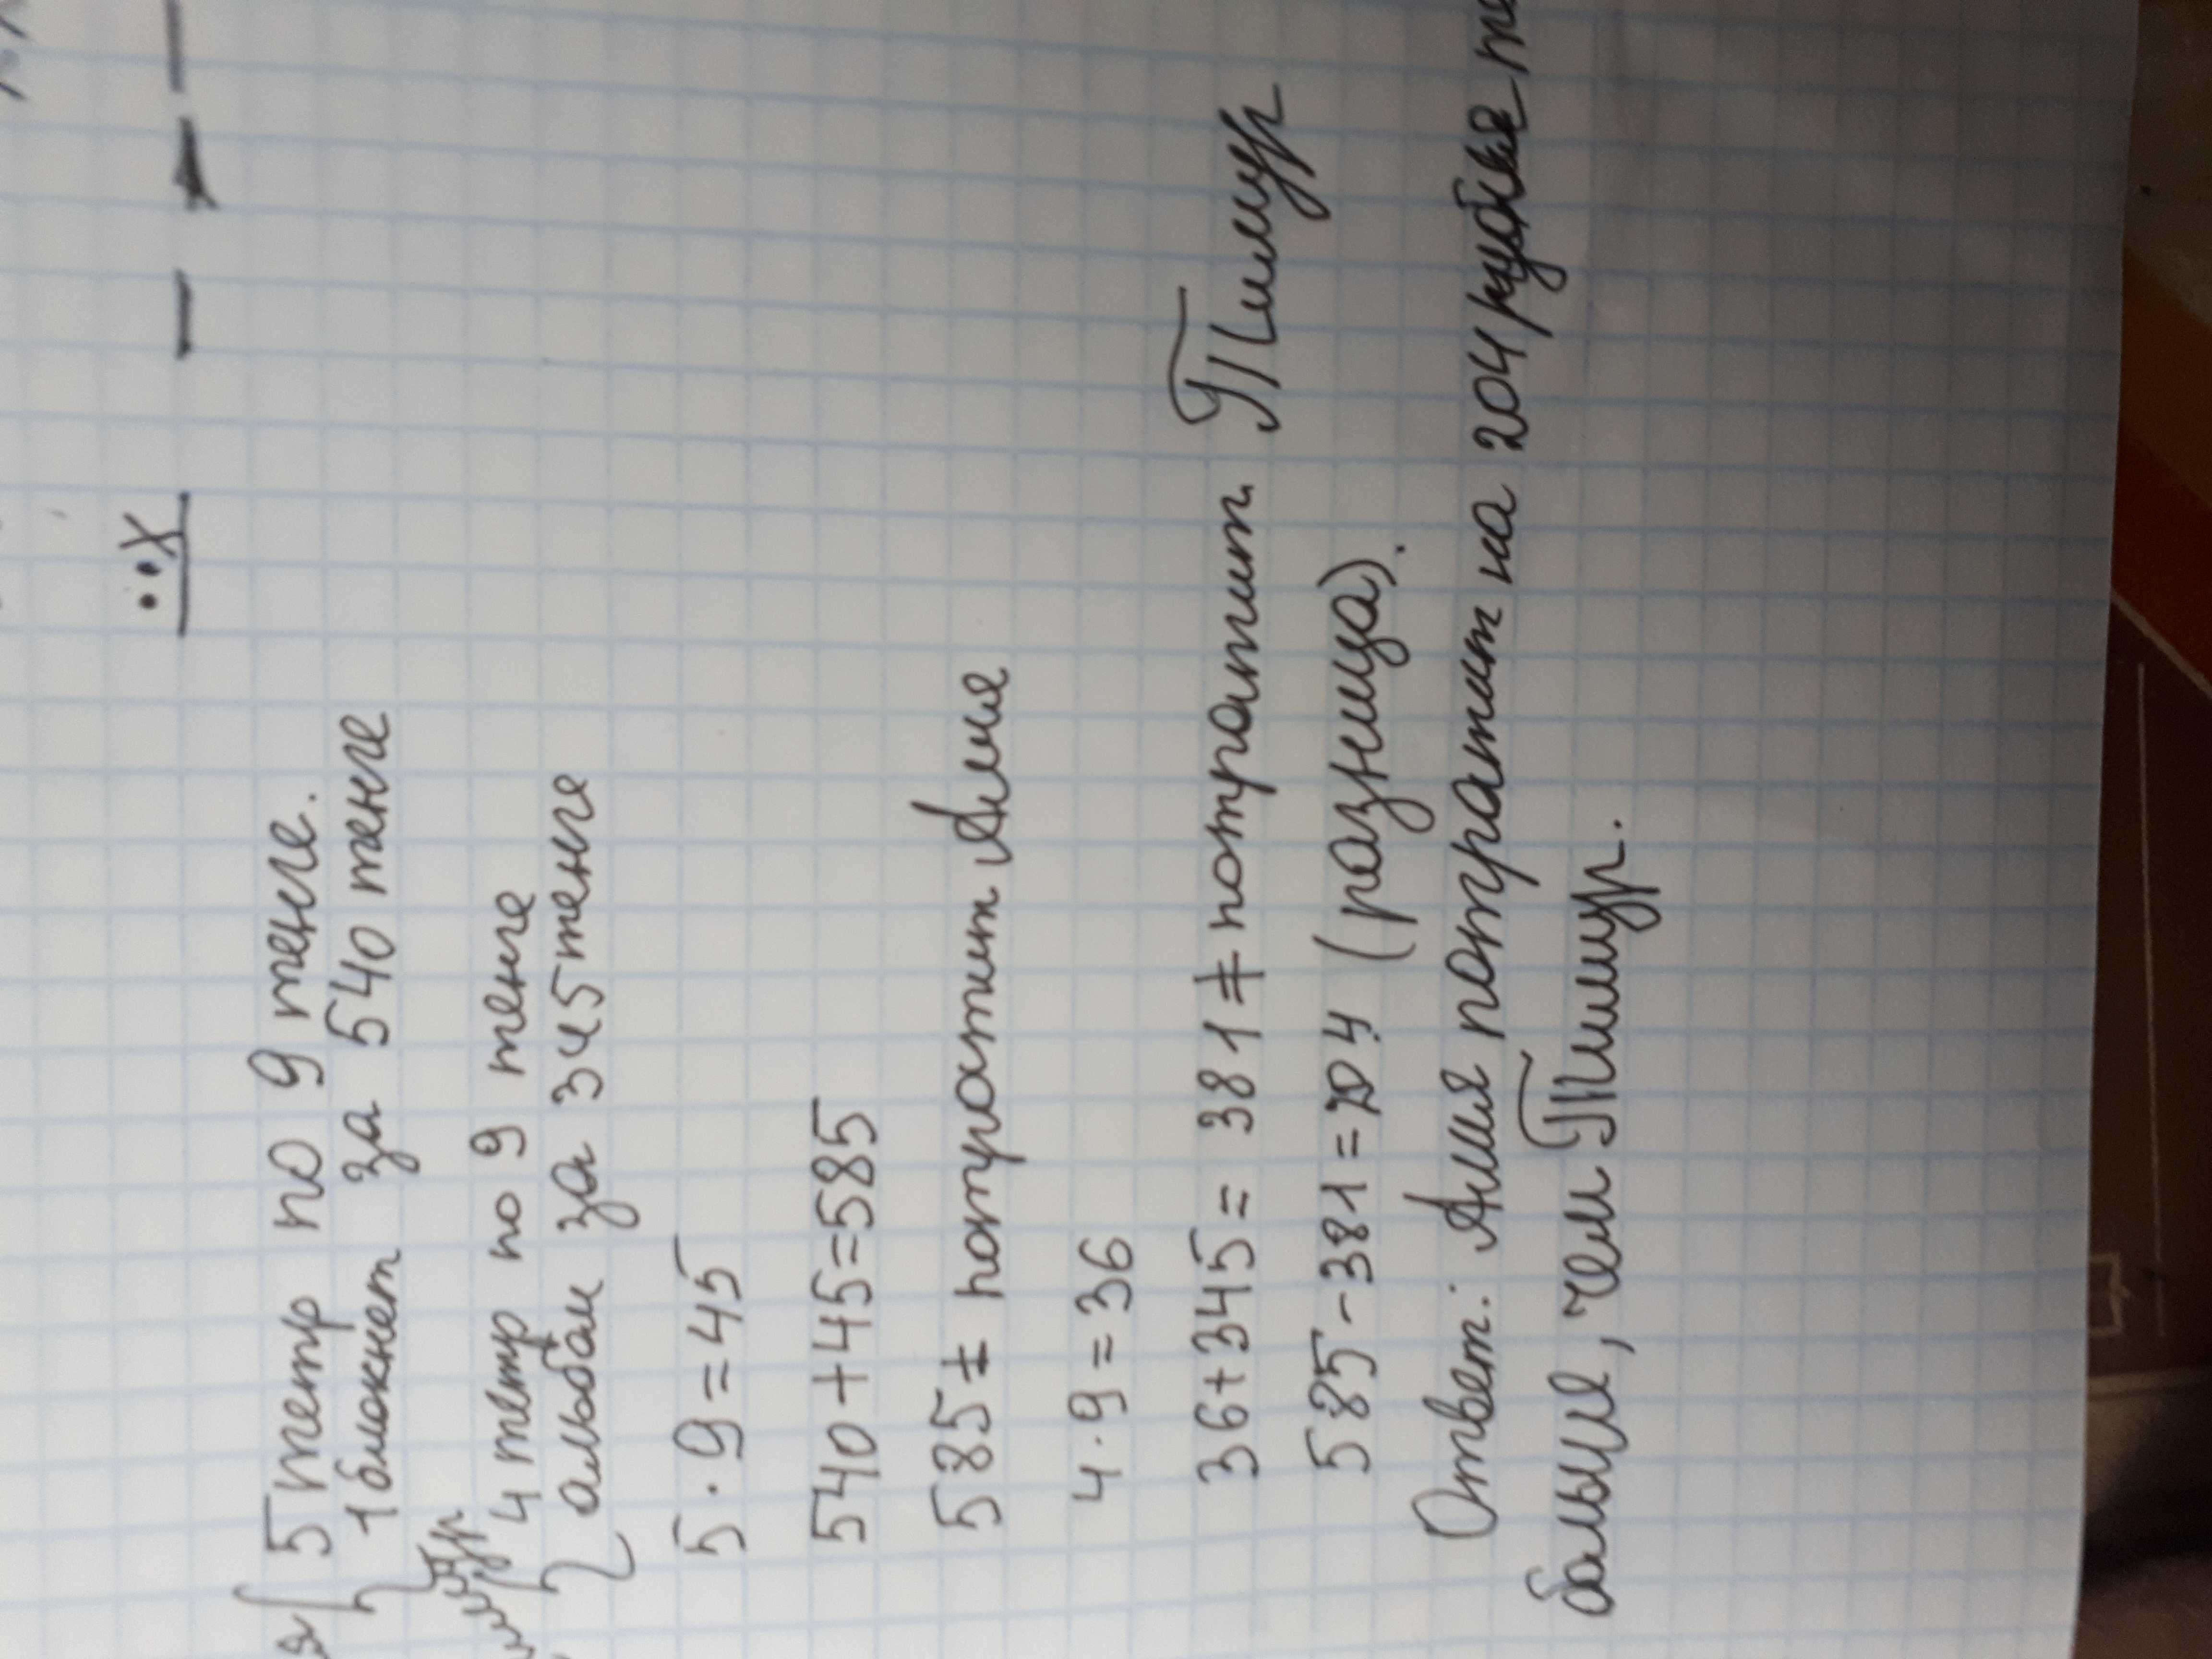 x
5 тетр по 9 тенге.
1 блокнет за 540 тенге
4 тетр по 9 тенге
альбом за 345 тенге
5 · 9 = 45
540 + 45 = 585
585 ₸ потратит Алия
4 · 9 = 36
36 + 345 = 381 ₸ потратит Тимур
585 - 381 = 204 (разница).
Ответ: Алия потратит на 204
больше, чем Тимур.